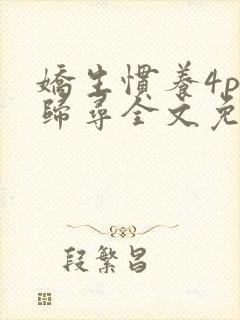 嬌生慣養4p
歸尋全文免
段繁昌